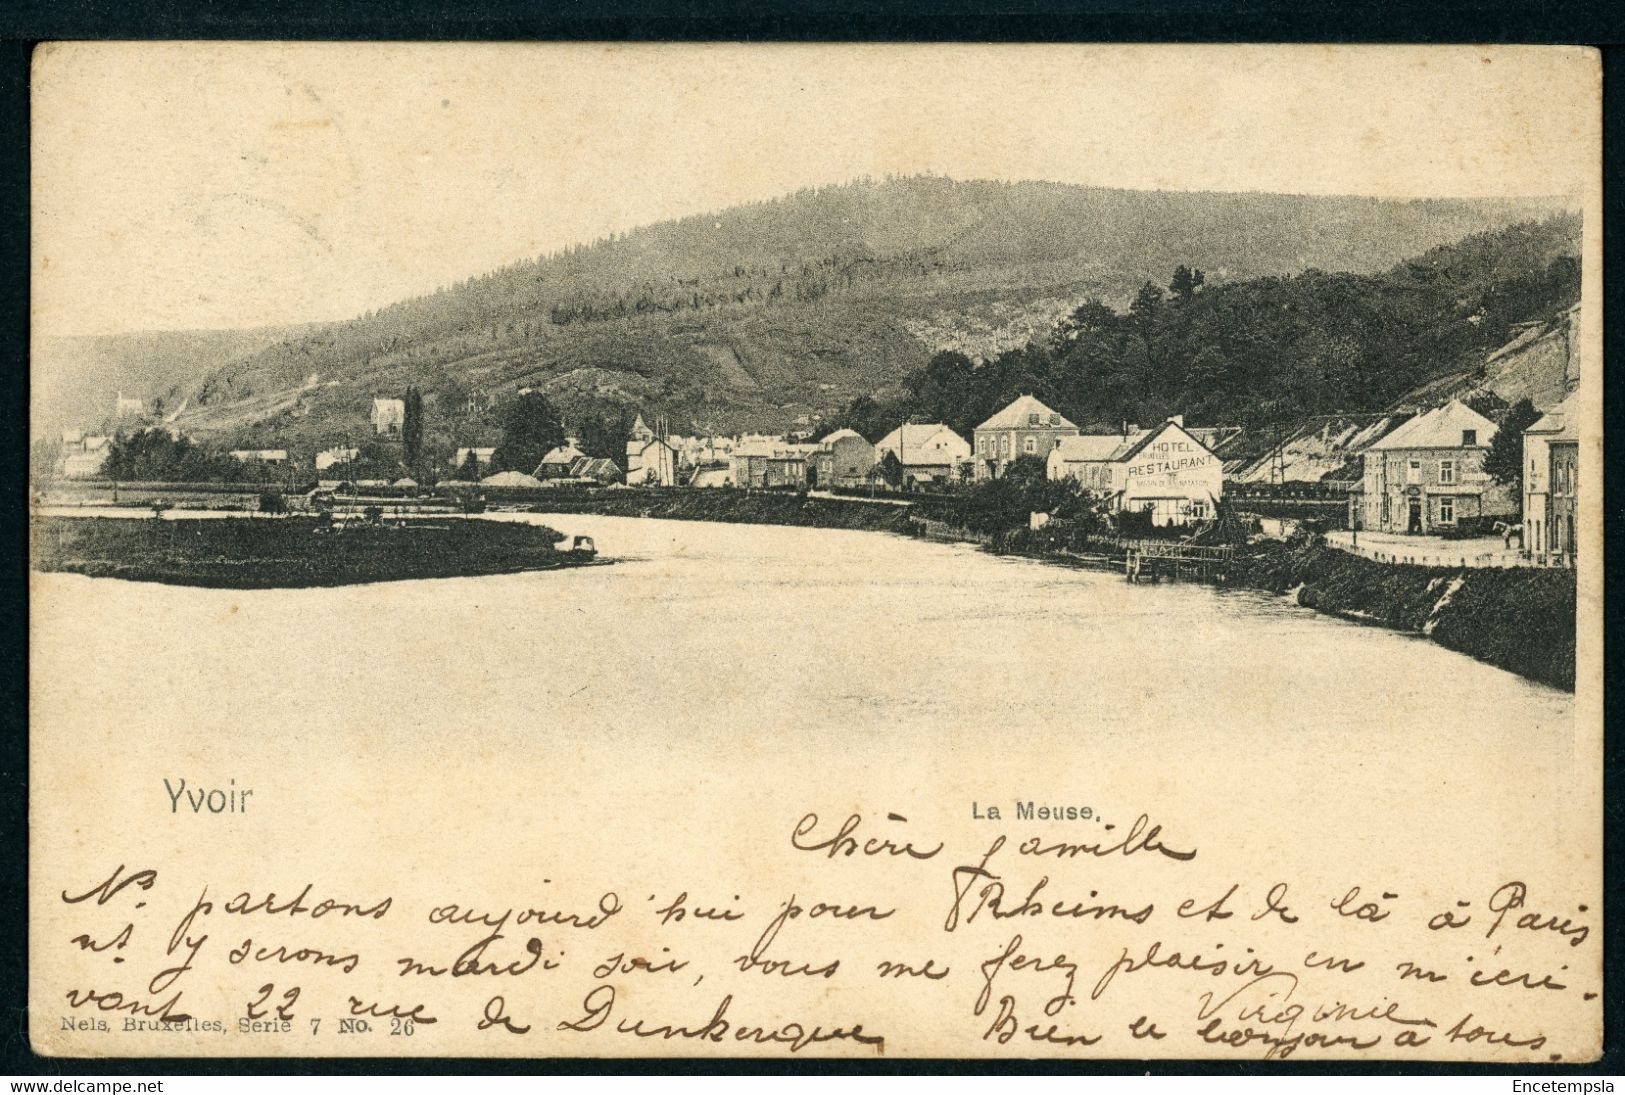 HOTEL
RESTAURANT
BASSIN DE NATATION
Yvoir
La Meuse.
Chère famille
Ns. partons aujourd'hui pour Rheims et de là à Paris
ns. y serons mardi soir, vous me ferez plaisir en m'écri-
vant 22 rue de Dunkerque Bien le bonjour à tous.
Virginie
Nels, Bruxelles, Serie 7 No. 26
delcampe.net
Encetempsla